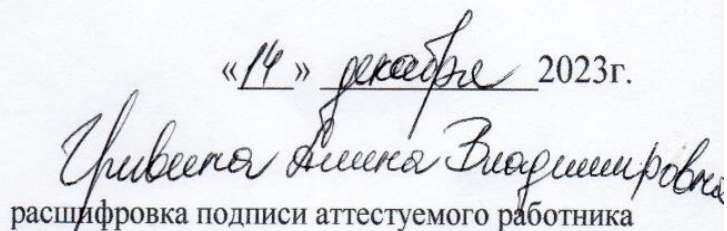 «14» декабря 2023г.
Гривина Алина Владимировна
расшифровка подписи аттестуемого работника